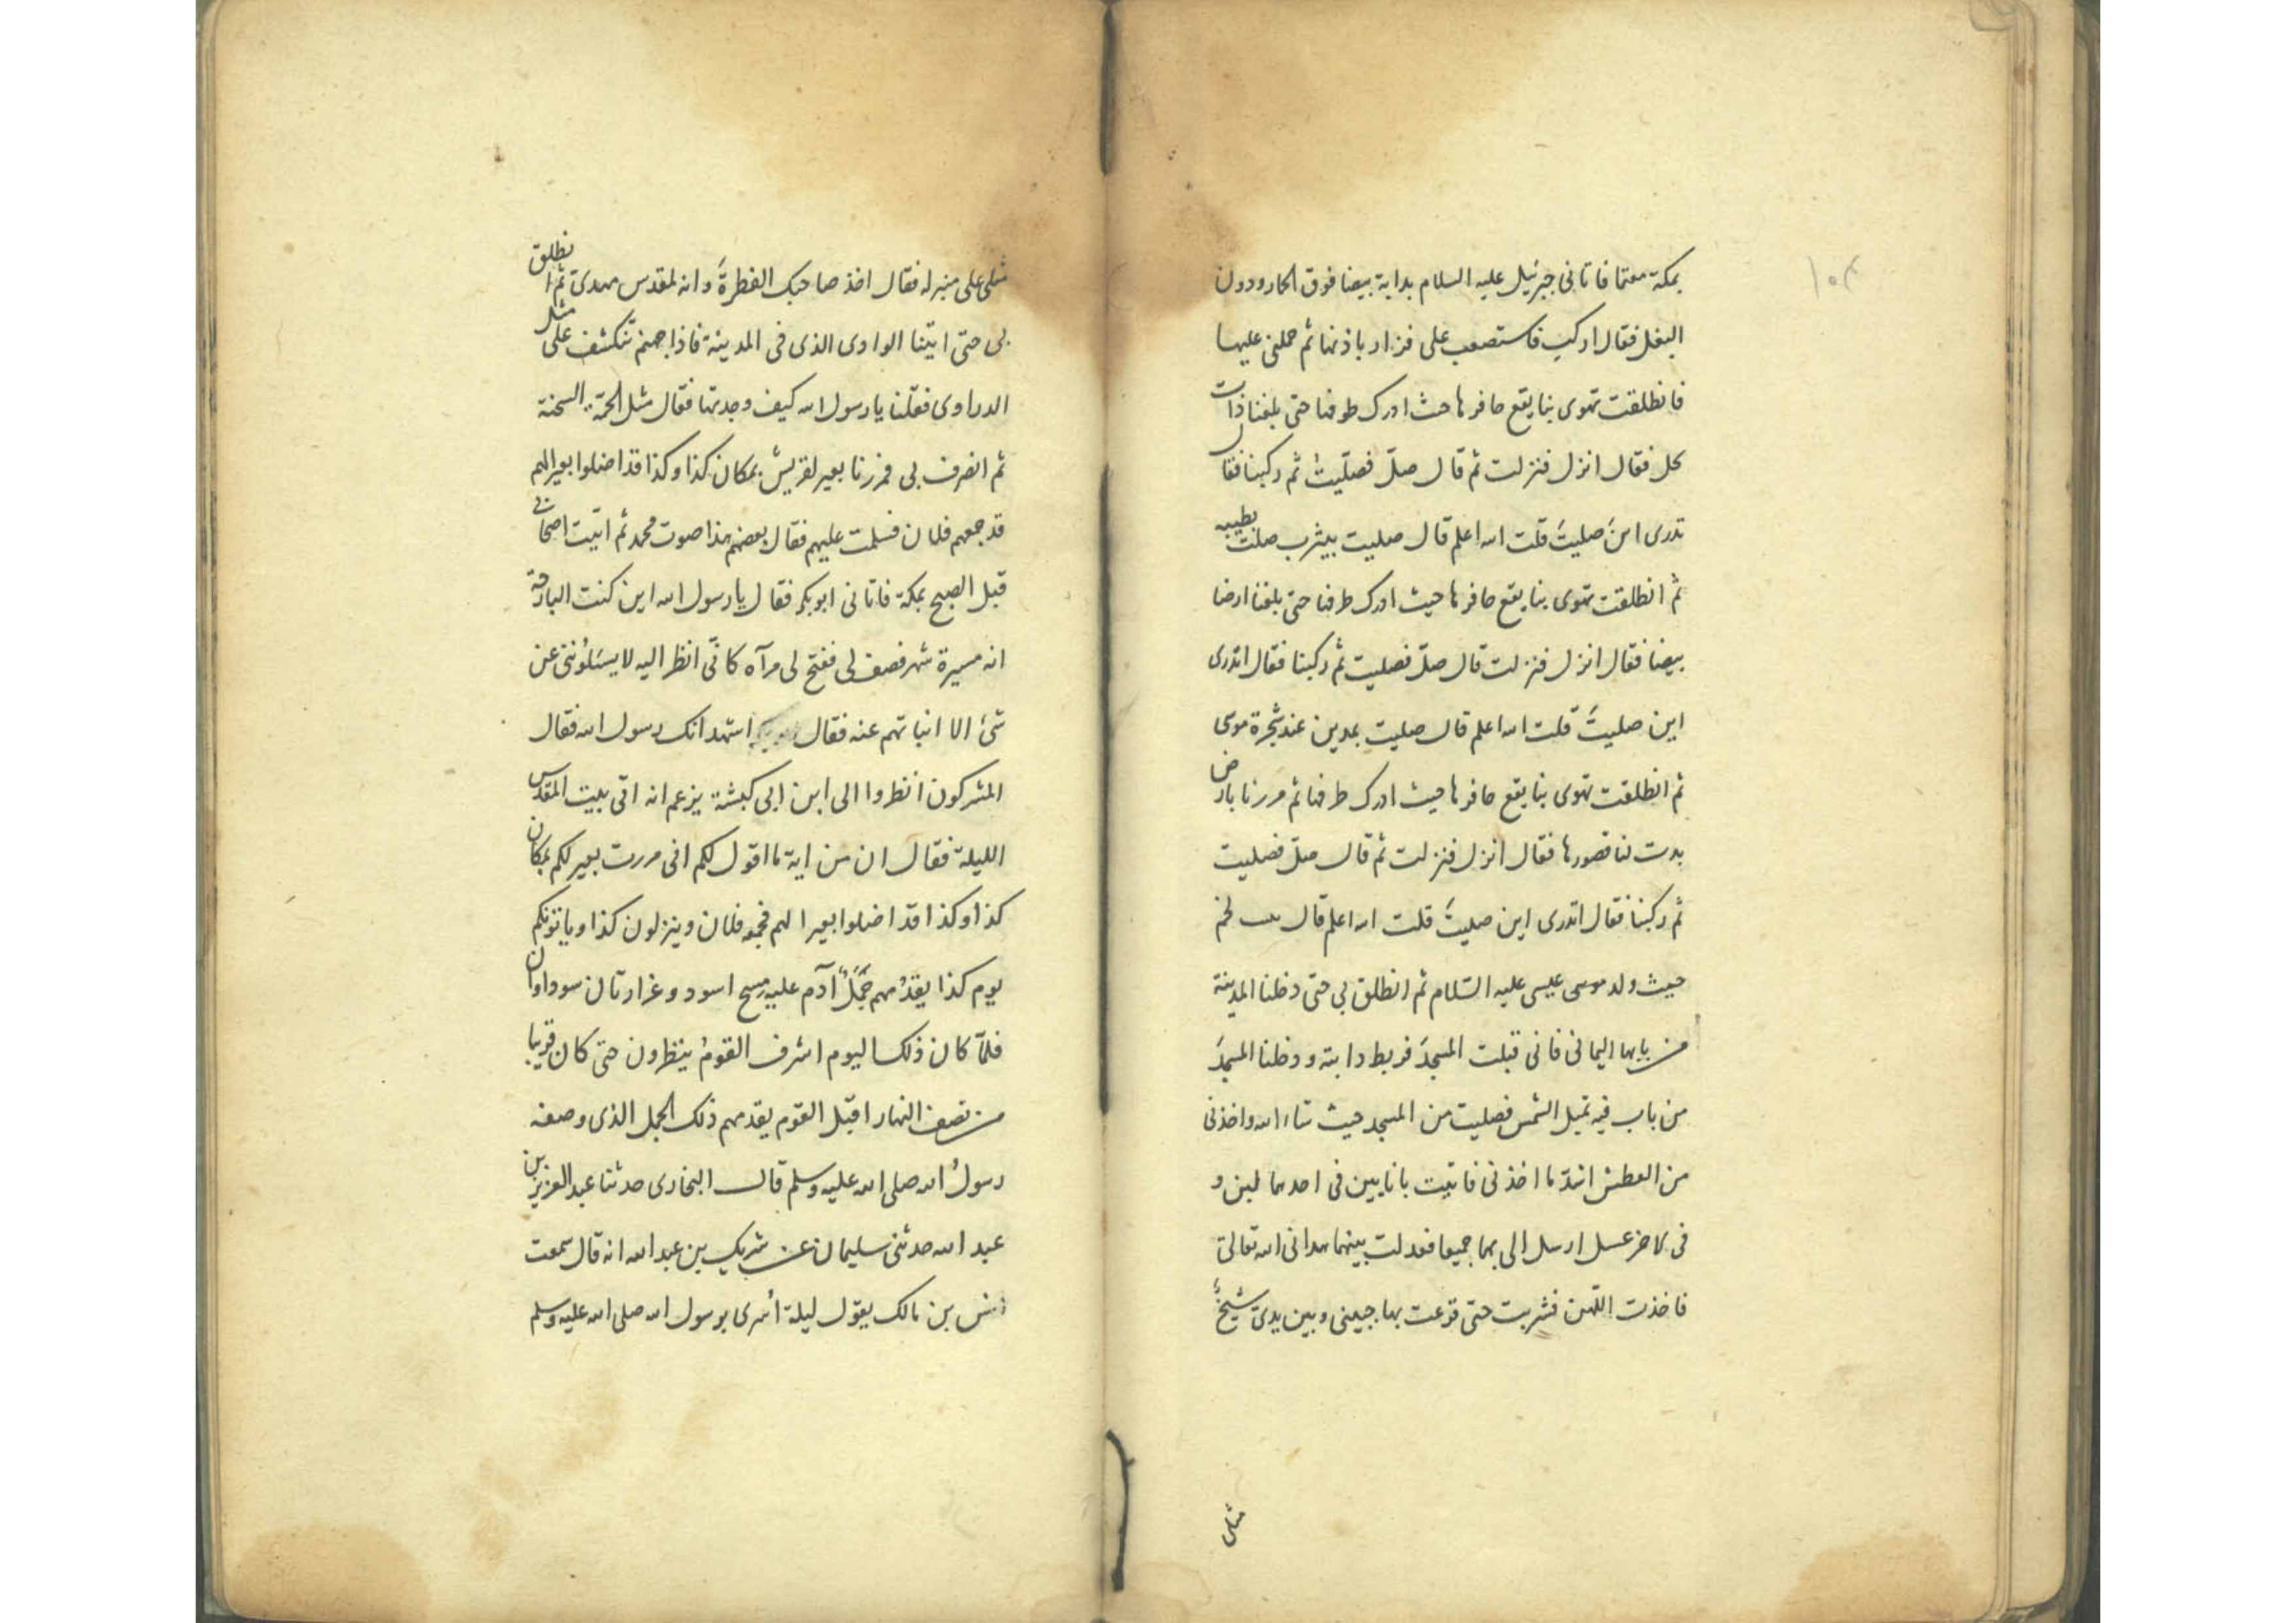 ١٠٣
بمكة معتما فاتانى جبرئيل عليه السلام بدابة بيضا فوق الحمار ودون
البغل فقال اركب فاستصعب على فزار باذنها ثم حملنى عليها
فانطلقت تهوى بنا يقع حافرها حيث ادرك طرفها حتى بلغنا ذات
نخل فقال انزل فنزلت ثم قال صلّ فصلّيت ثم ركبنا فقال
تدرى اين صليتَ قلت الله اعلم قال صليت بيثرب صلت بطيبه
ثم انطلقت تهوى بنا يقع حافرها حيث ادرك طرفها حتى بلغنا ارضا
بيضا فقال انزل فنزلت قال صلّ فصليت ثم ركبنا فقال اتدرى
اين صليتَ قلت الله اعلم قال صليت بمدين عند شجرة موسى
ثم انطلقت تهوى بنا يقع حافرها حيث ادرك طرفها ثم مررنا بارض
بدت لنا قصورها فقال انزل فنزلت ثم قال صلّ فصليت
ثم ركبنا فقال اتدرى اين صليتَ قلت الله اعلم قال ببيت لحم
حيث ولد موسى عيسى عليه السّلام ثم انطلق بى حتى دخلنا المدينة
من بابها اليمانى فاتى قبلت المسجدَ فربط دابته ودخلنا المسجدَ
من باب فيه تميل الشمس فصليت من المسجد حيث شاء الله واخذنى
من العطش اشدّ ما اخذنى فاتيت بانايين فى احدهما لبن و
فى الاخر عسل ارسل الى بهما جميعا فعدلت بينهما هدانى الله تعالى
فاخذت اللّبن فشربت حتى قرعت بها جبينى وبين يدىّ شيخٌ
مثلى
مثلى على منبر له فقال اخذ صاحبك الفطرةَ وانه لمقدس مهدى ثم انطلق
بى حتى اتيّنا الوادى الذى فى المدينة فاذا جهنم تنكشف على مثل
الدراوى فقلنا يا رسول الله كيف وجدتها فقال مثل الحمّة السخنة
ثم انصرف بى فمررنا بعير لقريش بمكان كذا وكذا قد اضلوا بعيرا لهم
قد جمعهم فلان فسلمت عليهم فقال بعضهم هذا صوت محمد ثم اتيت اصحابى
قبل الصبح بمكة فاتانى ابوبكر فقال يا رسول الله اين كنت البارحة
انه مسيرة شهر فصف لى ففتح لى مرآه كانّى انظر اليه لا يسئلُوننى عن
شئ الا انباتهم عنه فقال ابوبكر اشهد انك رسول الله فقال
المشركون انظروا الى ابن ابى كبشة يزعم انه اتى بيت المقدس
الليلة فقال ان من اية ما اقول لكم انى مررت بعير لكم بمكان
كذا وكذا قد اضلوا بعيرا لهم فجمعه فلان وينزلون كذا وياتونكم
يوم كذا يقدُمهم جَمَلٌ آدم عليه مسح اسود وغرارتان سوداوان
فلمّا كان ذلك اليوم اشرف القومُ ينظرون حتى كان قريبا
من نصف النهار اقبل القوم يقدمهم ذلك الجمل الذى وصفه
رسولُ الله صلى الله عليه وسلم قال البخارى حدثنا عبد العزيز بن
عبد الله حدثنى سليمان عن شريك بن عبد الله انه قال سمعت
انس بن مالك يقول ليلة اُسرى برسول الله صلى الله عليه وسلم